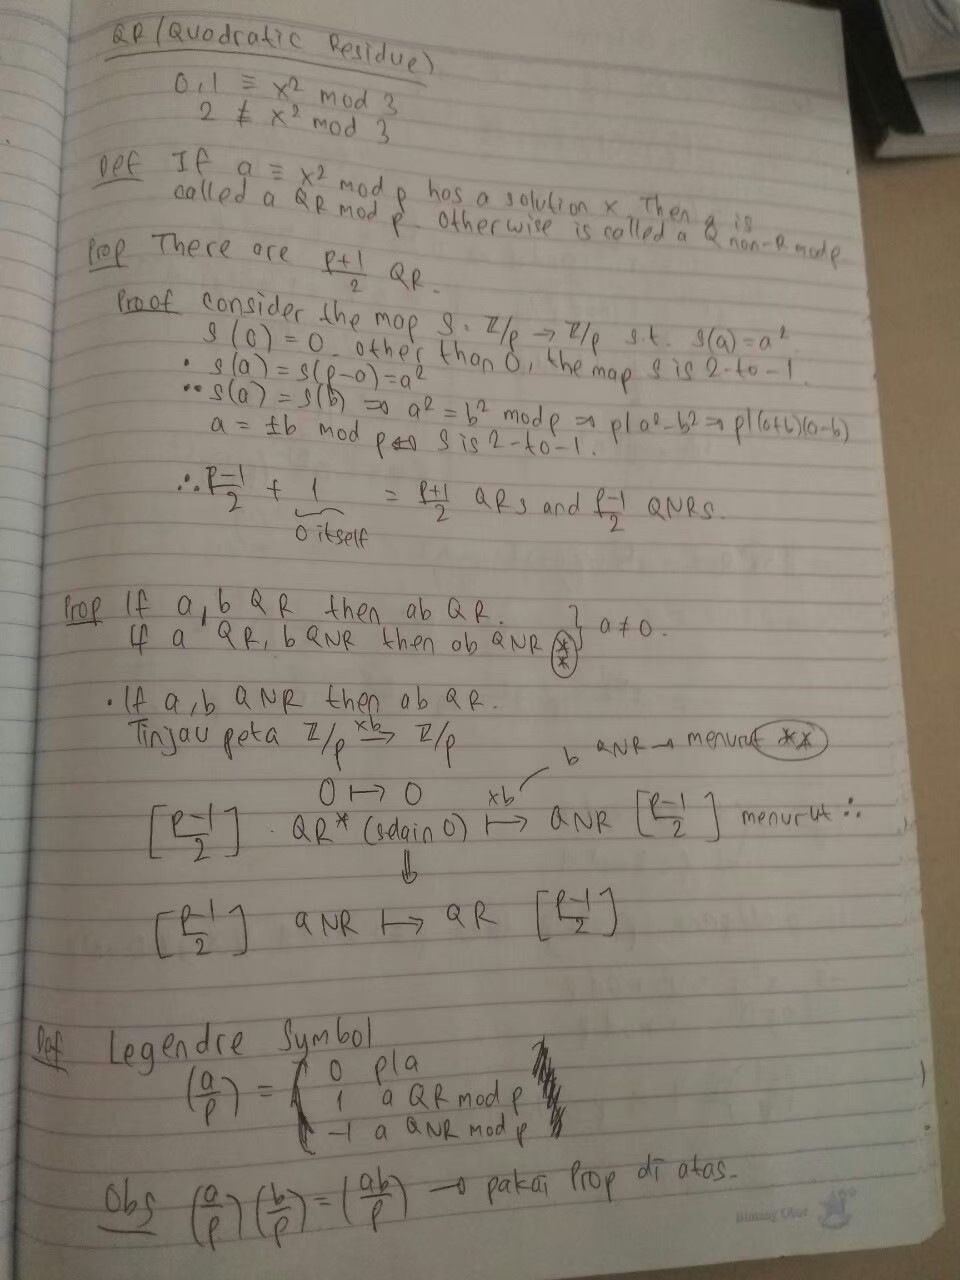 QR (Quadratic Residue)
0,1 ≡ x² mod 3
2 ≢ x² mod 3
Def If a ≡ x² mod p has a solution x Then a is
called a QR mod p. otherwise is called a Q non-R mod p
Prop There are (p+1)/2 QR.
Proof consider the map S: ℤ/p → ℤ/p s.t. S(a)=a²
S(0)=0. other than 0, the map S is 2-to-1.
• S(a) = S(p-a)=a²
•• S(a) = S(b) ⇒ a² = b² mod p ⇒ p|a²-b² ⇒ p|(a+b)(a-b)
a = ±b mod p ⇔ S is 2-to-1.
∴ (p-1)/2 + 1 = (p+1)/2 QRs and (p-1)/2 QNRs.
0 itself
Prop If a,b QR then ab QR.
If a QR, b QNR then ab QNR ** } a≠0.
• If a,b QNR then ab QR.
Tinjau peta ℤ/p ×b→ ℤ/p
b QNR → menurut **
0 ↦ 0
[(p-1)/2] . QR* (selain 0) ×b↦ QNR [(p-1)/2] menurut ∴
⇓
[(p-1)/2] QNR ↦ QR [(p-1)/2]
Def Legendre Symbol
(a/p) = { 0 p|a
1 a QR mod p
-1 a QNR mod p
Obs (a/p)(b/p)=(ab/p) → pakai Prop di atas.